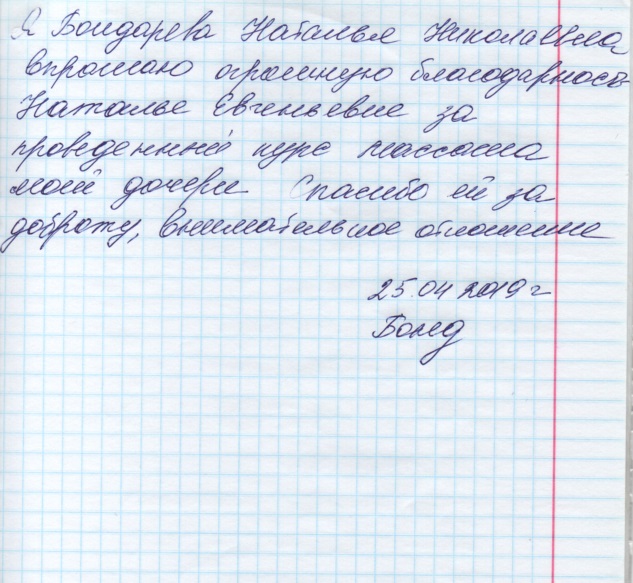 Я Бондарева Наталья Николаевна
выражаю огромную благодарность
Наталье Евгеньевне за
проведенный курс массажа
моей дочери Спасибо ей за
доброту, внимательное отношение
25.04 2019 г
Бонд